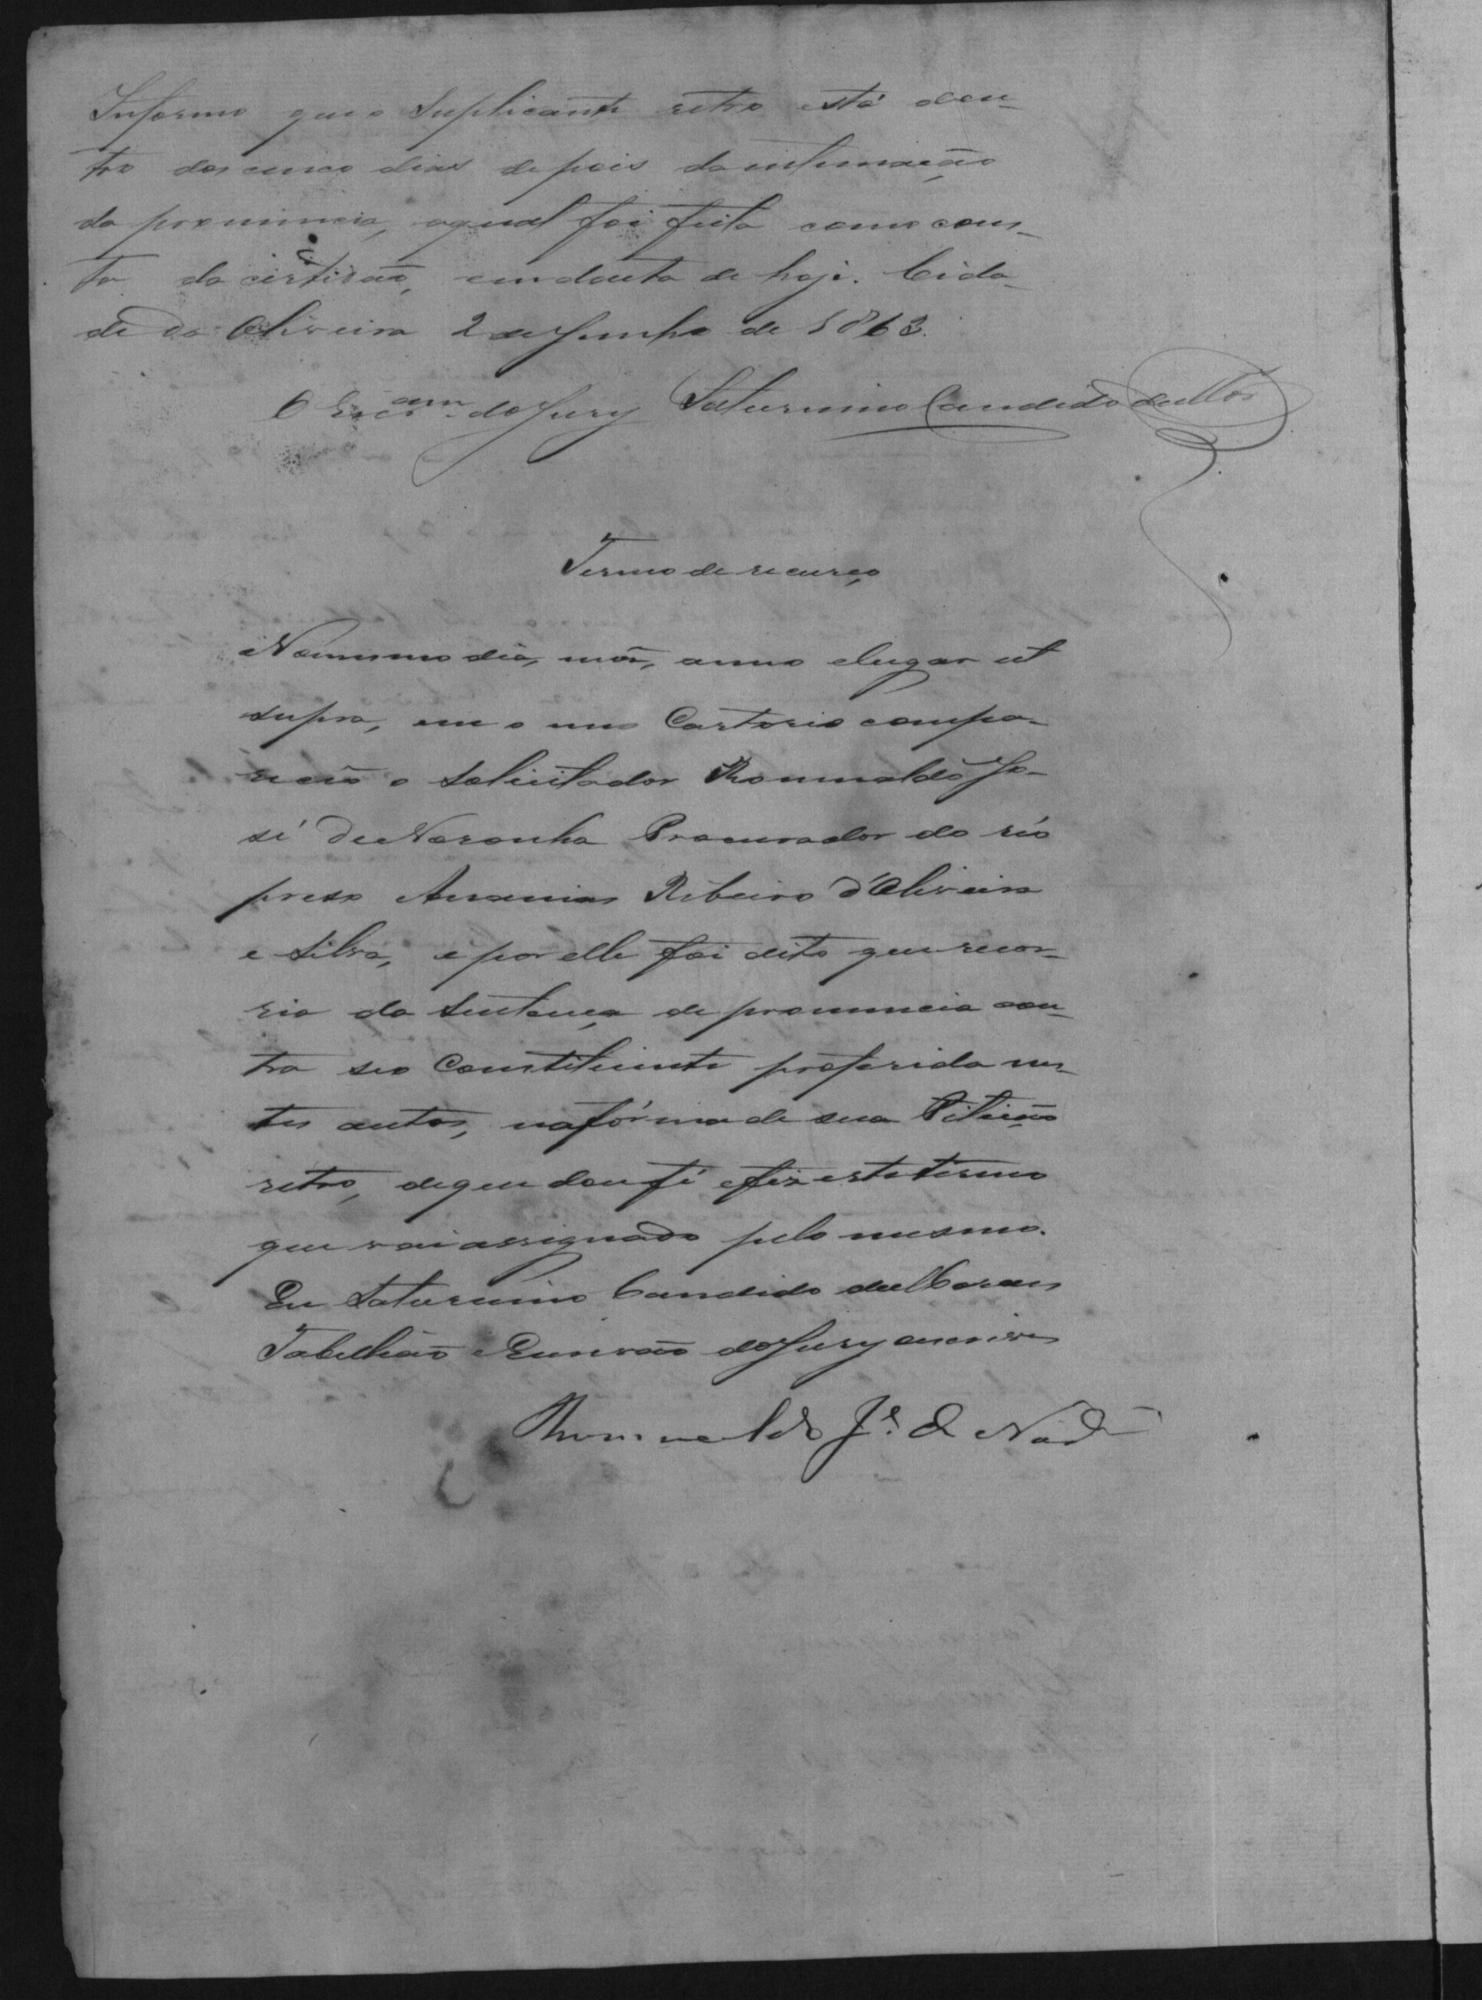 Informo que o Suplicante retro está den-
tro dos cinco dias depois da intimação
da pronuncia, a qual foi feita como cons-
ta da certidão, em data de hoje. Cida-
de da Oliveira 2 de Junho de 1863.
O Escr.am do Jury Saturnino Candido de Mor.es
Termo de recurço
No mesmo dia, mês, anno e lugar ut
supra, em o meu Cartorio compa-
receo o Solicitador Romualdo Jo-
sé de Noronha Procurador do réo
preso Ananias Ribeiro d'Oliveira
e Silva, e por elle foi dito que recor-
ria da Sentença de pronuncia con-
tra seo Constituinte proferida nes-
tes autos, na fórma de sua Petição
retro, de que dou fé e fiz este termo
que vai assignado pelo mesmo.
Eu Saturnino Candido de Moraes
Tabellião e Escrivão do Jury o escrivi
Romualdo J.e de Nor.a